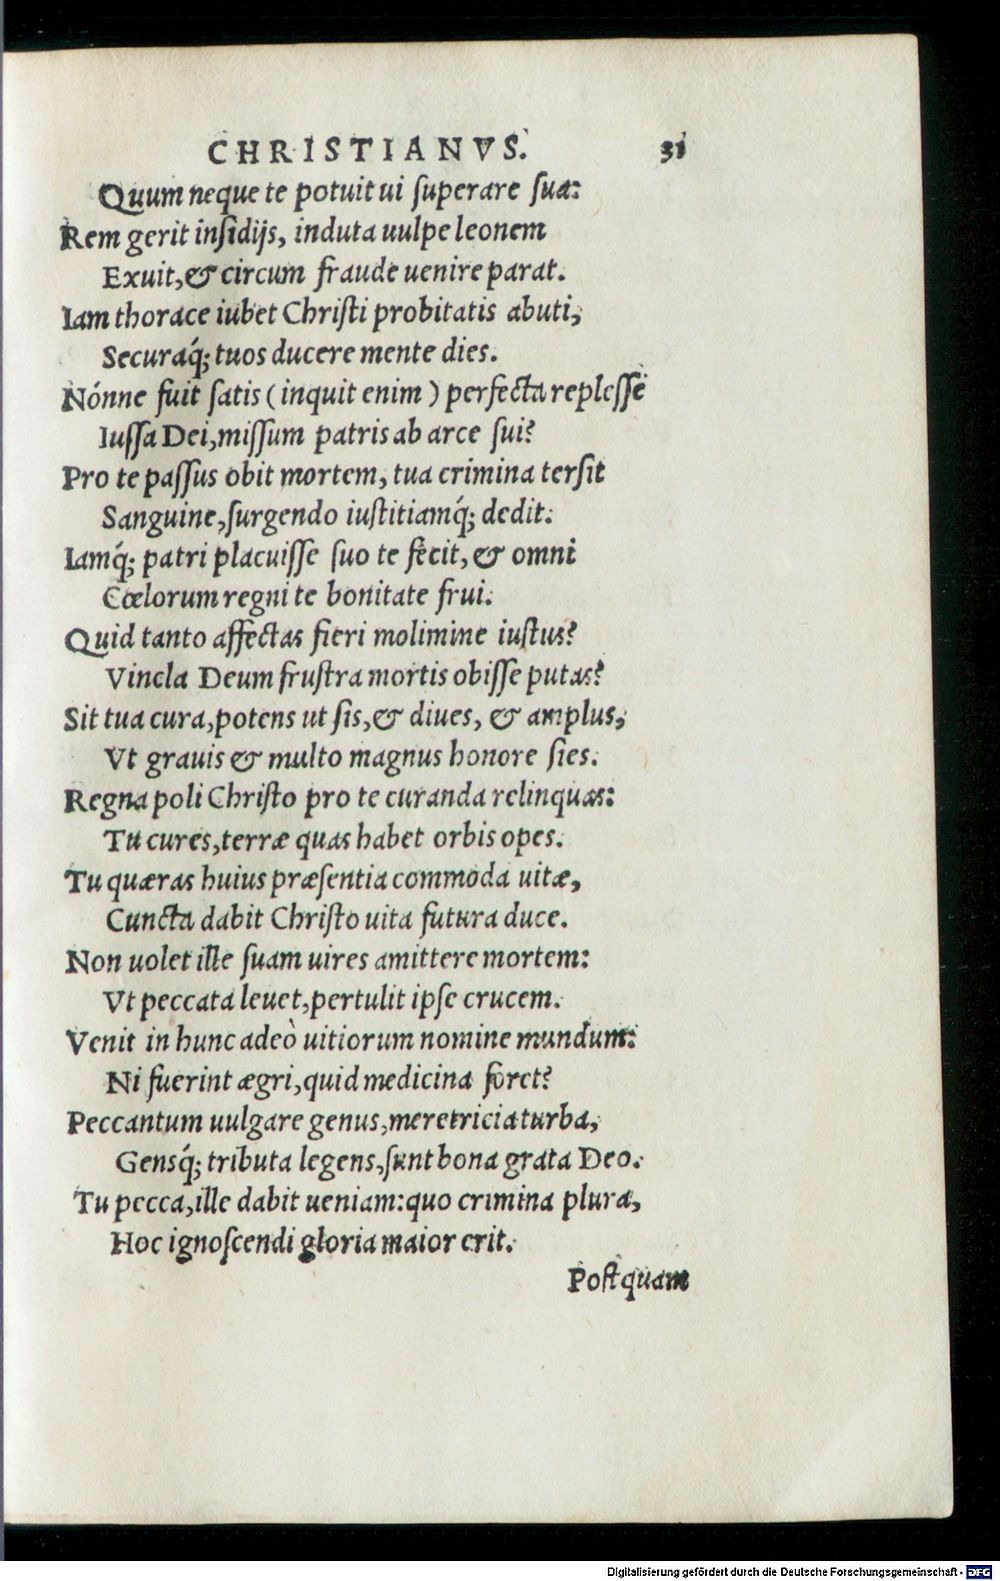 CHRISTIANVS. 31
Quum neque te potuit ui ſuperare ſua:
Rem gerit inſidijs, induta uulpe leonem
Exuit, & circum fraude uenire parat.
Iam thorace iubet Chriſti probitatis abuti,
Securaq́; tuos ducere mente dies.
Nónne fuit ſatis (inquit enim) perfecta repleſſe
Iuſſa Dei, miſſum patris ab arce ſui?
Pro te paſſus obit mortem, tua crimina terſit
Sanguine, ſurgendo iuſtitiamq́; dedit.
Iamq́; patri placuiſſe ſuo te fecit, & omni
Cœlorum regni te bonitate frui.
Quid tanto affectas fieri molimine iuſtus?
Vincla Deum fruſtra mortis obiſſe putas?
Sit tua cura, potens ut ſis, & diues, & amplus,
Vt grauis & multo magnus honore ſies.
Regna poli Chriſto pro te curanda relinquas:
Tu cures, terræ quas habet orbis opes.
Tu quæras huius præſentia commoda uitæ,
Cuncta dabit Chriſto uita futura duce.
Non uolet ille ſuam uires amittere mortem:
Vt peccata leuet, pertulit ipſe crucem.
Venit in hunc adeò uitiorum nomine mundum:
Ni fuerint ægri, quid medicina foret?
Peccantum uulgare genus, meretricia turba,
Gensq́; tributa legens, ſunt bona grata Deo.
Tu pecca, ille dabit ueniam: quo crimina plura,
Hoc ignoſcendi gloria maior erit.
Poſtquam
Digitalisierung gefördert durch die Deutsche Forschungsgemeinschaft - DFG